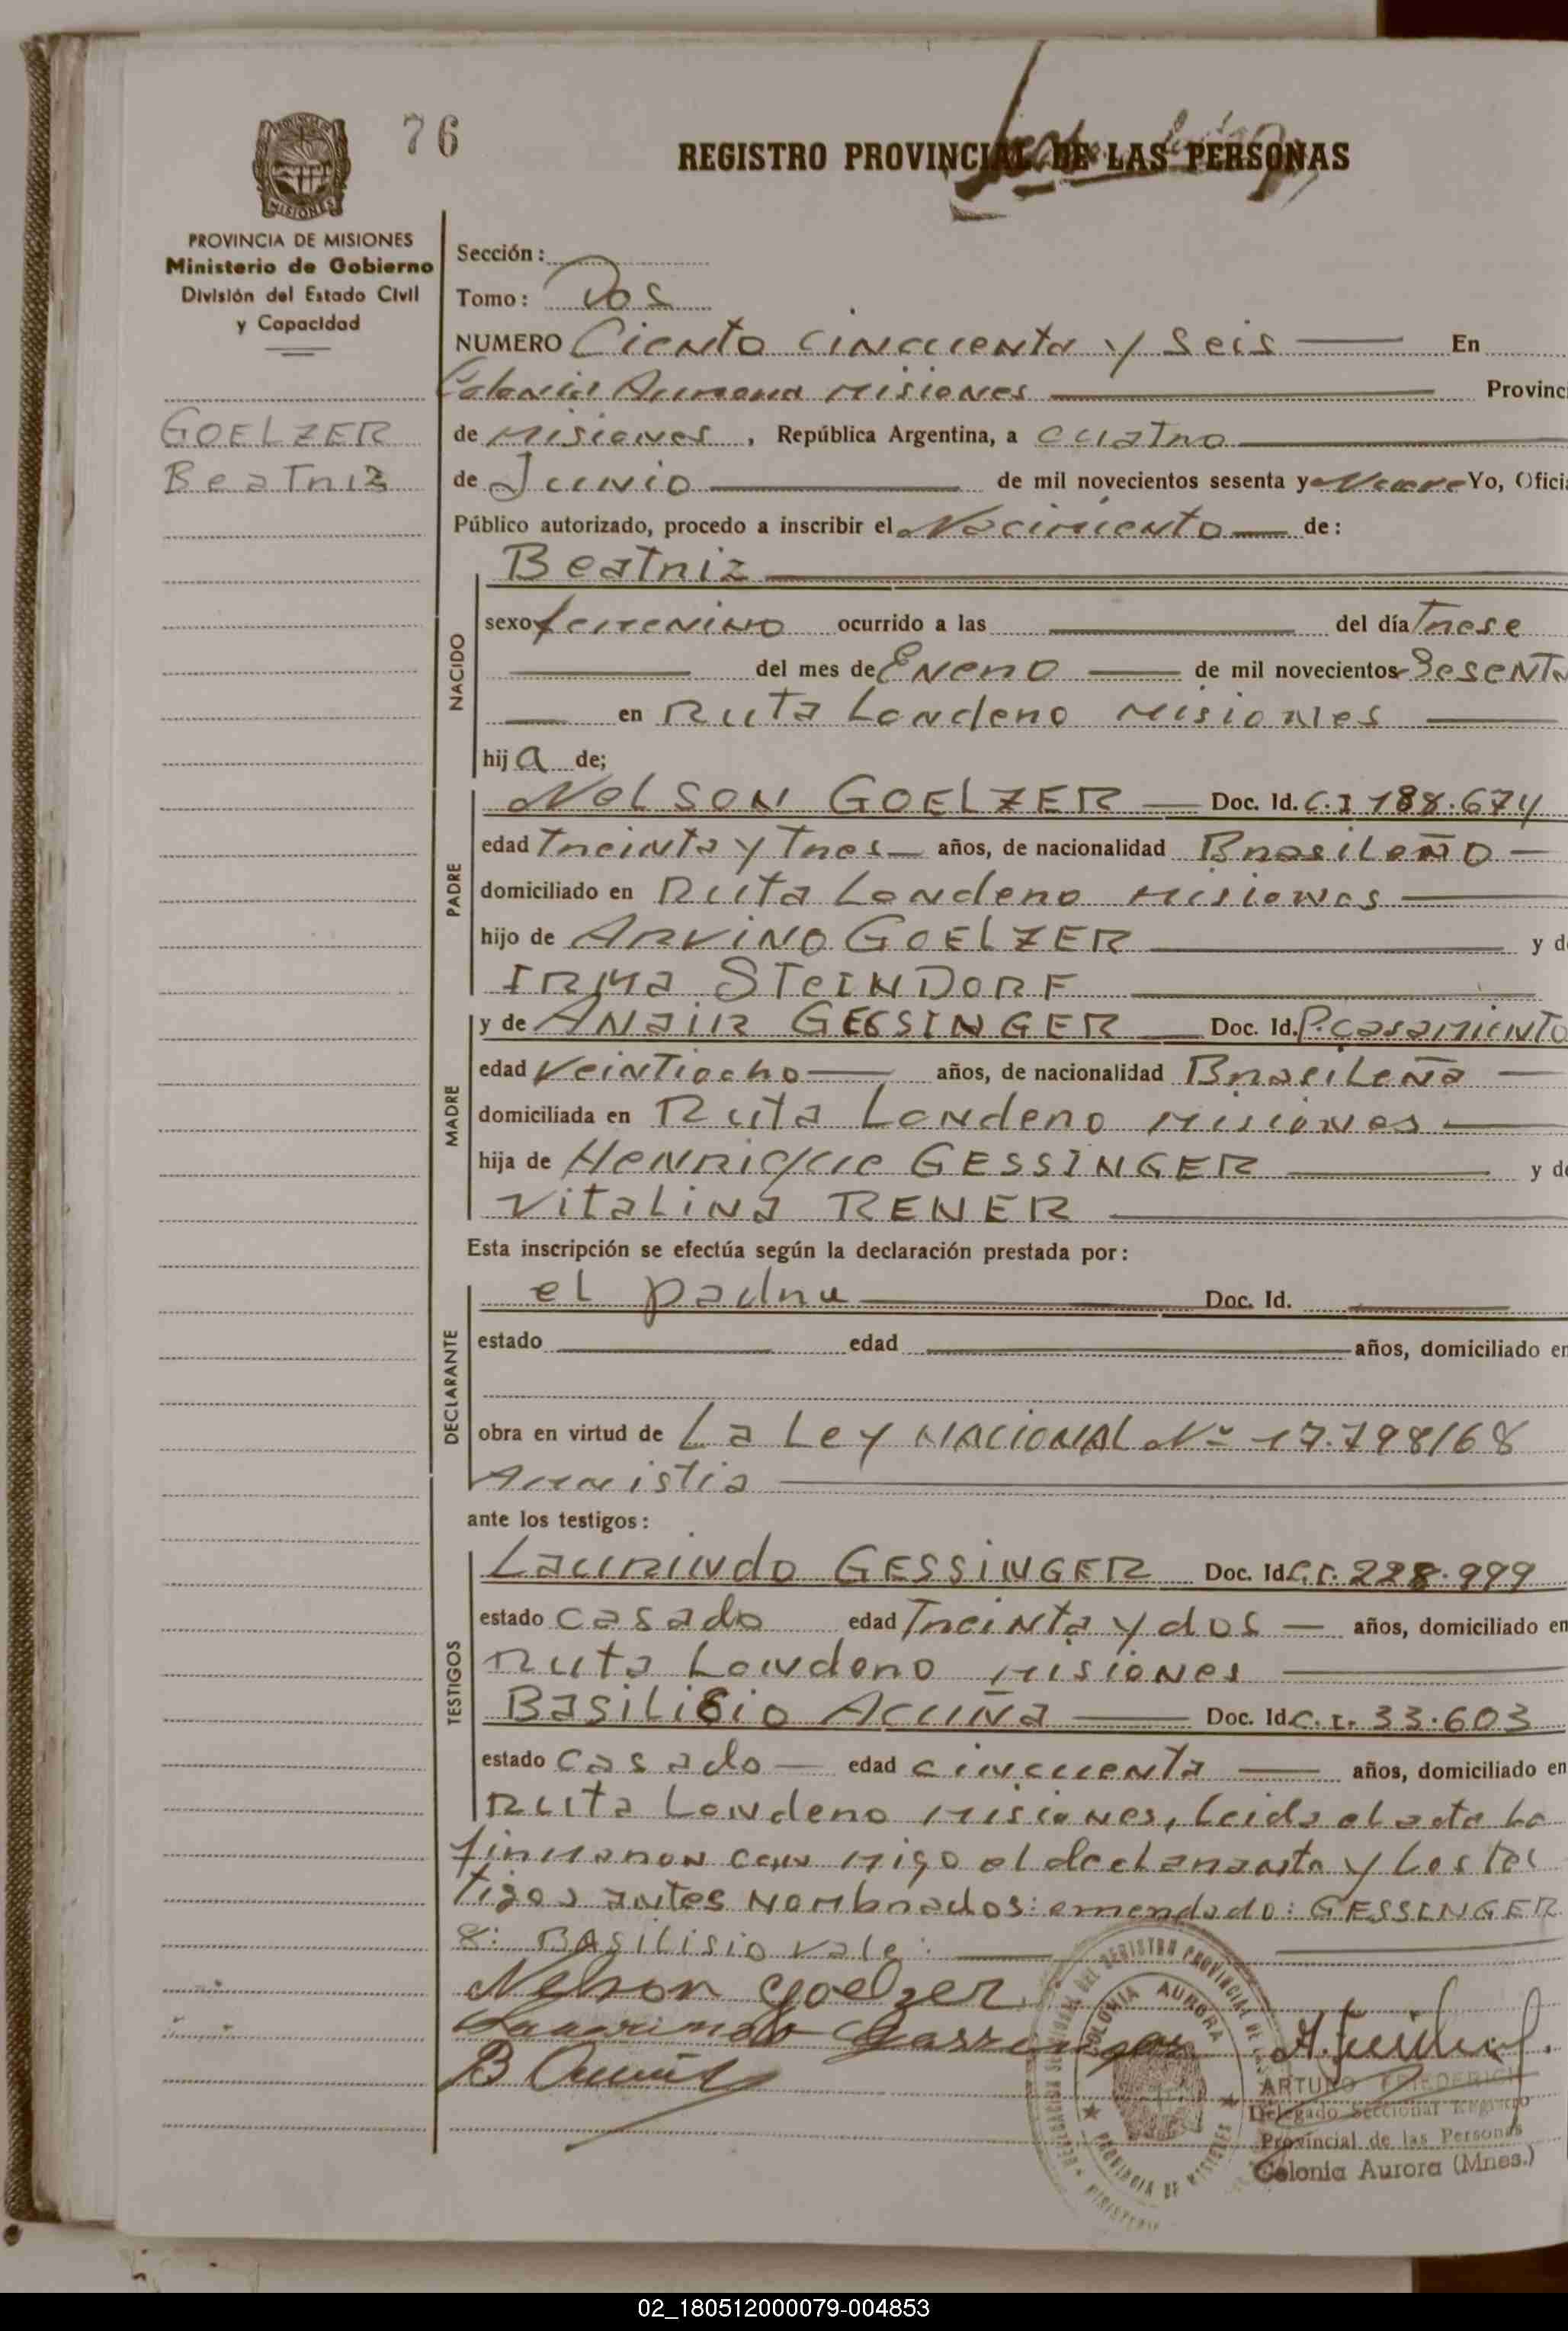 76
REGISTRO PROVINCIAL DE LAS PERSONAS
PROVINCIA DE MISIONES
Ministerio de Gobierno
División del Estado Civil
y Capacidad
GOELZER
Beatriz
Sección:
Tomo: Dos
NUMERO Ciento cincuenta y seis En
Colonia Aurora Misiones Provinci
de Misiones, República Argentina, a cuatro
de Junio de mil novecientos sesenta y Nueve Yo, Ofici
Público autorizado, procedo a inscribir el Nacimiento de:
Beatriz
NACIDO
sexo femenino ocurrido a las del día Trese
del mes de Enero de mil novecientos Sesenta
en Ruta Londero Misiones
hija de;
PADRE
Nelson GOELZER Doc. Id. C.I 188.674
edad Treinta y Tres años, de nacionalidad Brasileño
domiciliado en Ruta Londero Misiones
hijo de Arvino GOELZER y d
Irma STEINDORF
MADRE
y de Anair GESSINGER Doc. Id. P. casamiento
edad Veintiocho años, de nacionalidad Brasileña
domiciliada en Ruta Londero Misiones
hija de Henrique GESSINGER y de
Vitalina RENER
Esta inscripción se efectúa según la declaración prestada por:
DECLARANTE
el padre Doc. Id.
estado edad años, domiciliado en
obra en virtud de La Ley NACIONAL Nº 17.798/68
Amnistia
ante los testigos:
TESTIGOS
Laurindo GESSINGER Doc. Id C.I. 228.999
estado casado edad Treinta y dos años, domiciliado en
Ruta Londero Misiones
Basilisio Acuña Doc. Id C.I. 33.603
estado casado edad cincuenta años, domiciliado en
Ruta Londero Misiones, leida el acta la
firmaron con migo el declarante y los tes
tigos antes nombrados: emendado: GESSINGER
8: Basilisio vale:
Nelson Goelzer
B Acuña
COLONIA AURORA
PROVINCIA DE MISIONES
ARTURO FRIEDERICH
Delegado Seccional Registro
Provincial de las Personas
Colonia Aurora (Mnes.)
02_180512000079-004853